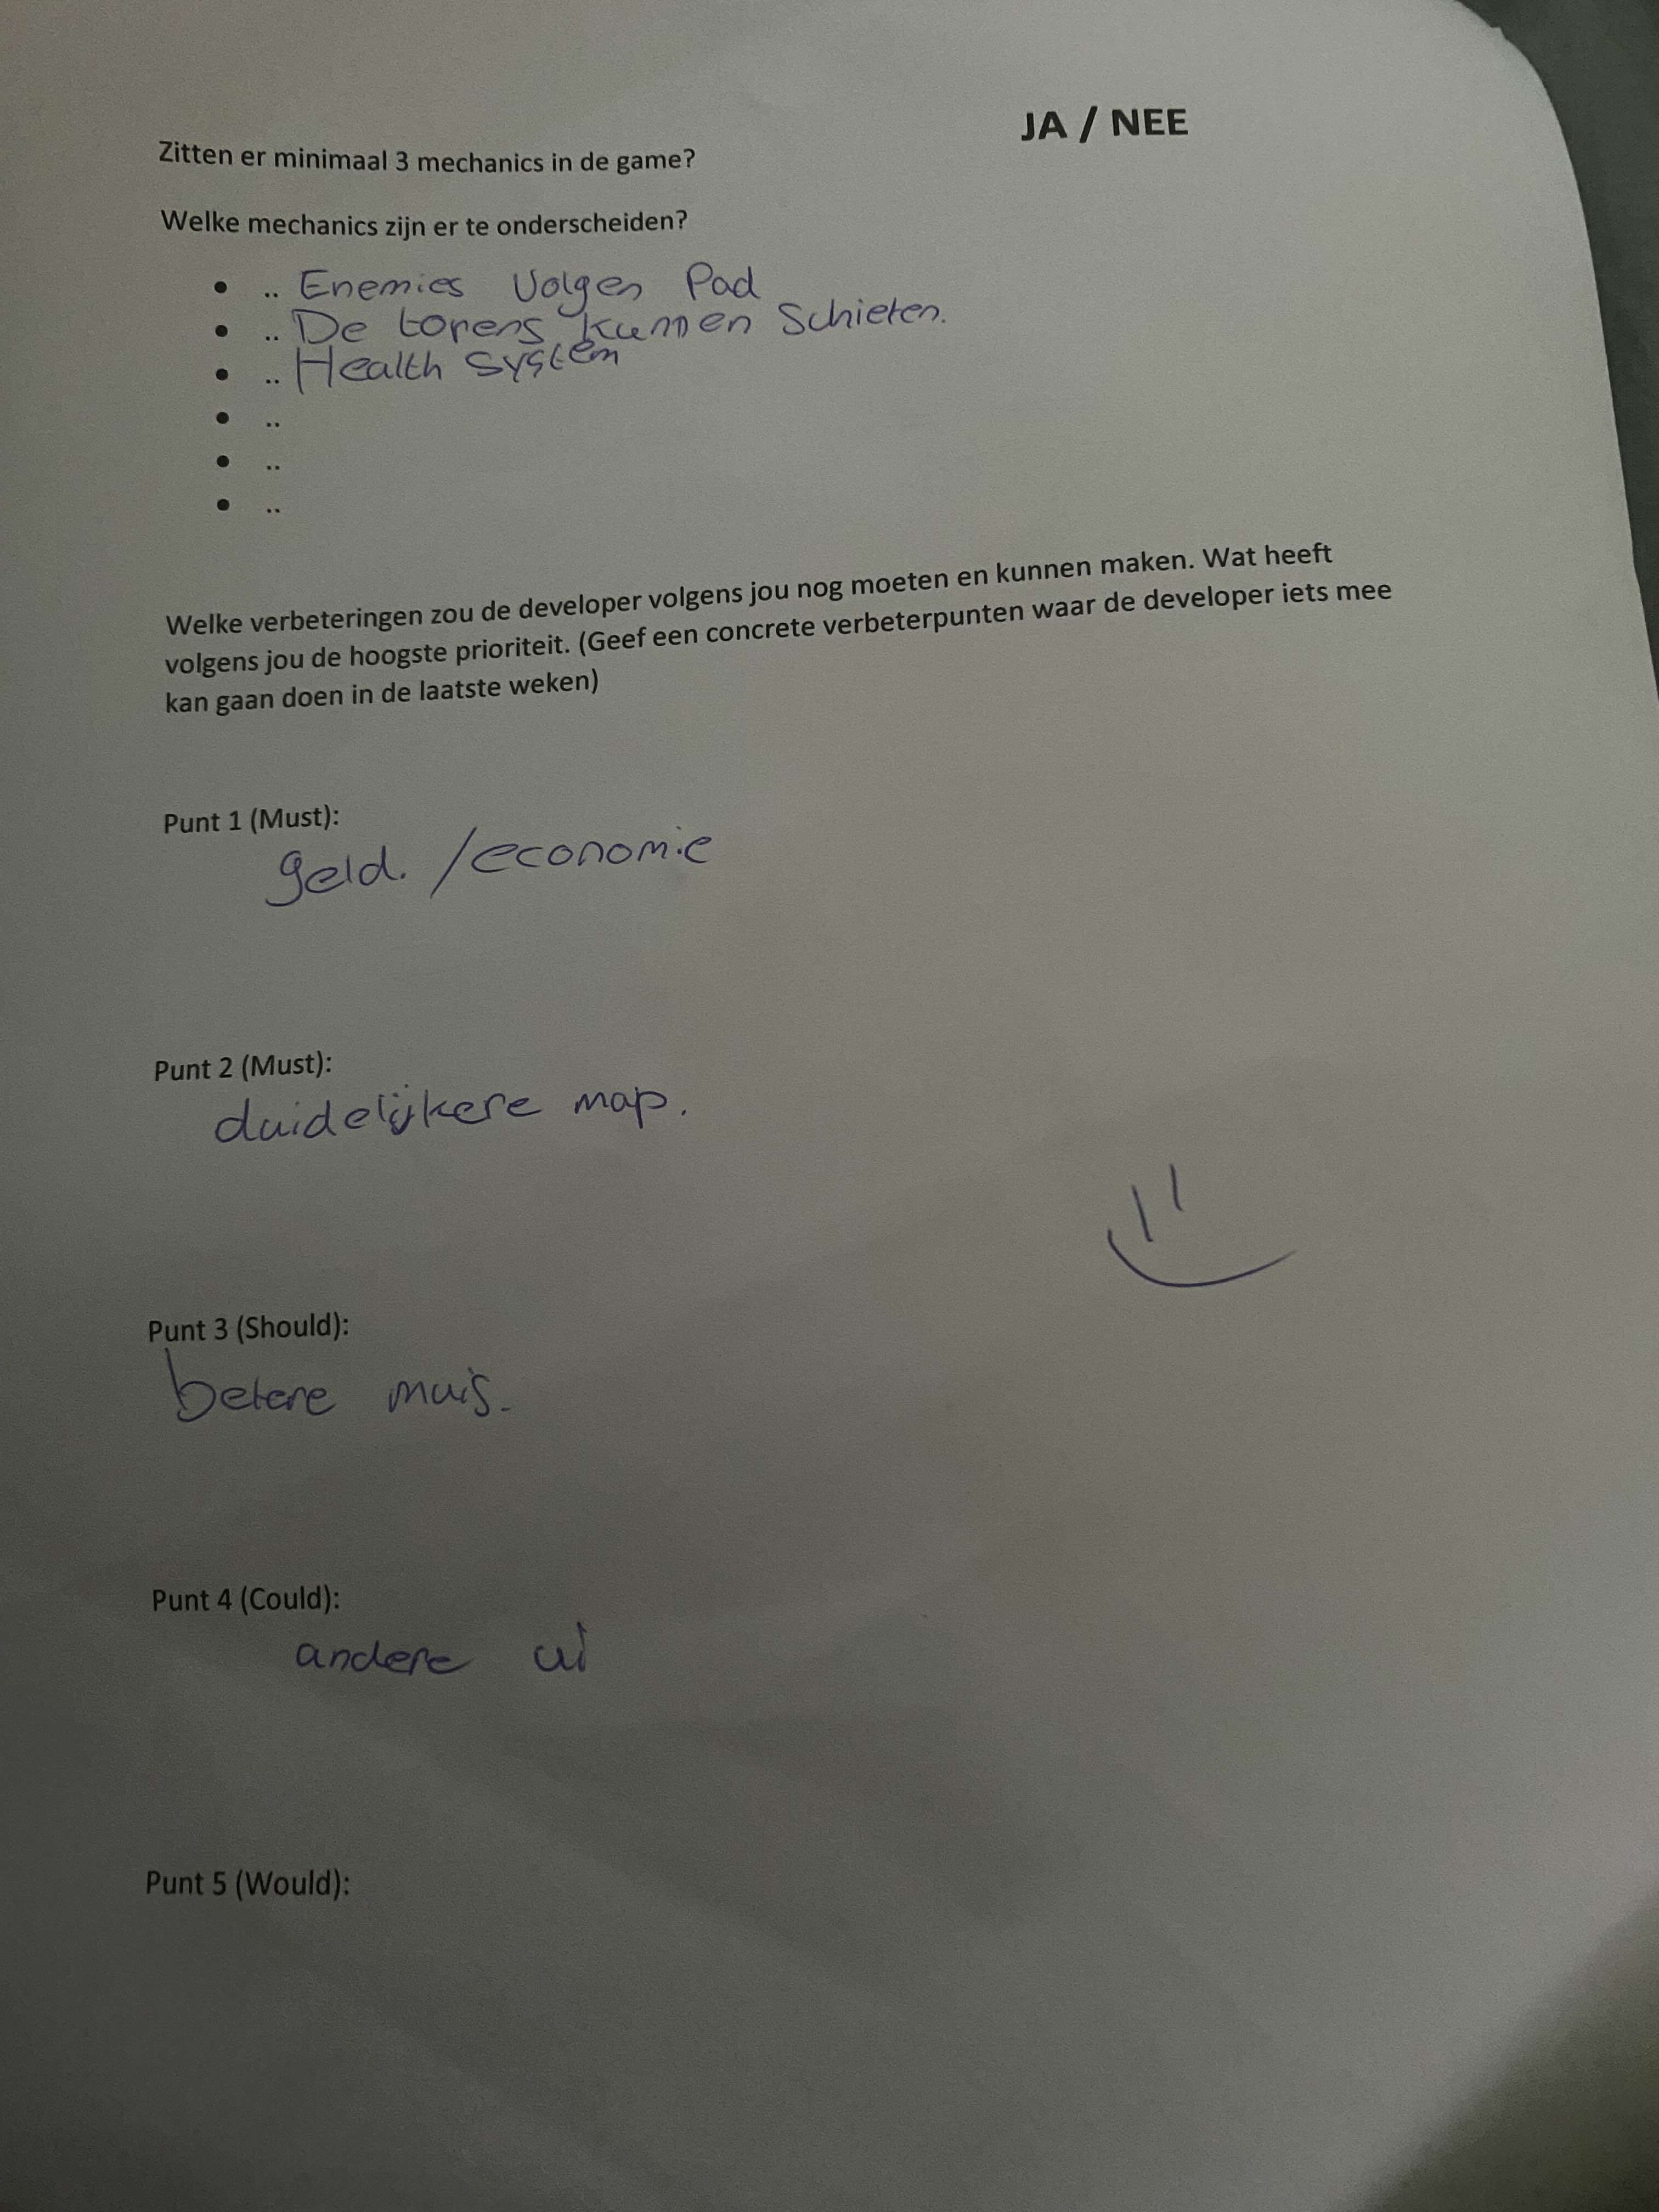 JA / NEE
Zitten er minimaal 3 mechanics in de game?
Welke mechanics zijn er te onderscheiden?
• .. Enemies Volgen Pad
• .. De torens kunnen Schieten.
• .. Health System
• ..
• ..
• ..
Welke verbeteringen zou de developer volgens jou nog moeten en kunnen maken. Wat heeft
volgens jou de hoogste prioriteit. (Geef een concrete verbeterpunten waar de developer iets mee
kan gaan doen in de laatste weken)
Punt 1 (Must):
geld. /economie
Punt 2 (Must):
duidelijkere map.
Punt 3 (Should):
betere muis.
Punt 4 (Could):
andere ui
Punt 5 (Would):